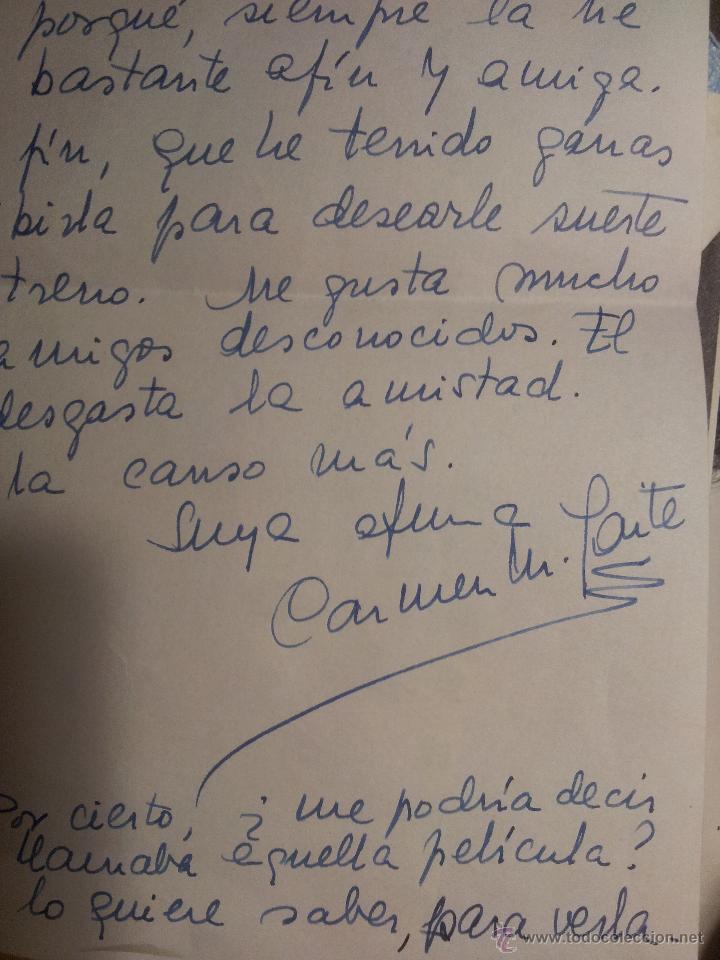 porqué, siempre la he
bastante afín y amiga.
fin, que he tenido ganas
para desearle suerte
treno. Me gusta mucho
amigos desconocidos. El
desgasta la amistad.
la canso más.
Suya afma
Carmen M. Gaite
Por cierto, ¿me podría decir
llamaba aquella película?
lo quiere saber, para verla.
www.todocoleccion.net